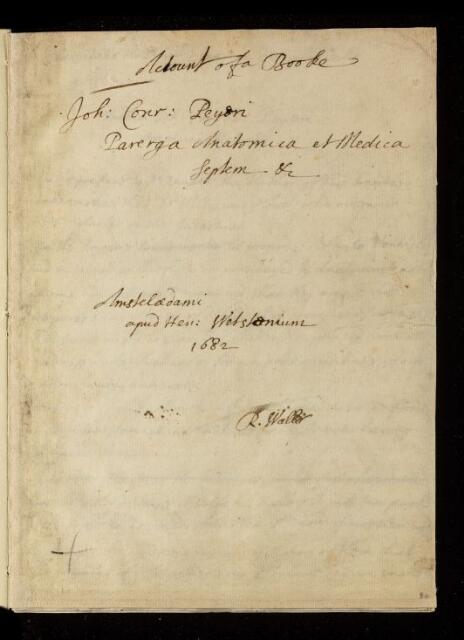 Account of a Booke
Joh: Conr: Peyeri
Parerga Anatomica et Medica
Septem &c
Amstelædami
apud Hen: Wetstenium
1682
R. Waller